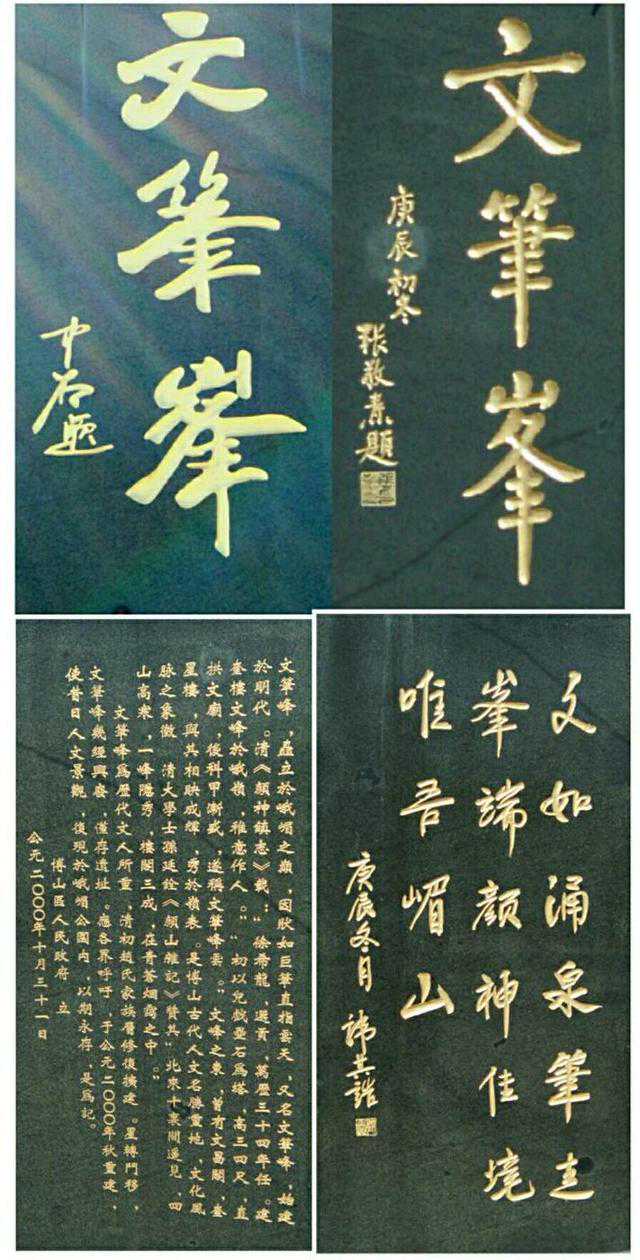 文筆峯
中石題
文筆峯
庚辰初冬
張敬焘題
文筆峰,矗立於峨嵋之巔,因狀如巨筆直指雲天,又名文筆峰,始建
於明代。清《顏神鎮志》載:“徐希龍,選貢,萬歷三十四年任。建
奎樓文峰於峨嶺,雅意作人。”“初以兒戲壘石爲塔,高三四尺,直
拱文廟,後科甲漸盛,遂稱文筆峰雲。”文峰之東,曾有文昌閣、奎
星樓,與其相映成輝,秀於嶺表。是博山古代人文名勝重地,文化風
脉之象徵。清大學士孫廷銓《顏山雜記》贊其“北來十裏間遥見,四
山高衆,一峰隱秀,樓閣三成,在青蒼烟靄之中。”
文筆峰爲歷代文人所重,清初趙氏家族屢修復擴建。星轉鬥移,
文筆峰幾經興廢,僅存遺址。應各界呼吁,于公元二000年秋重建,
使昔日人文景觀,復現於峨嵋公園内,以期永存,是爲記。
博山區人民政府 立
公元二000年十月三十一日
文如涌泉筆走
峯端顏神佳境
唯吾嵋山
庚辰冬月